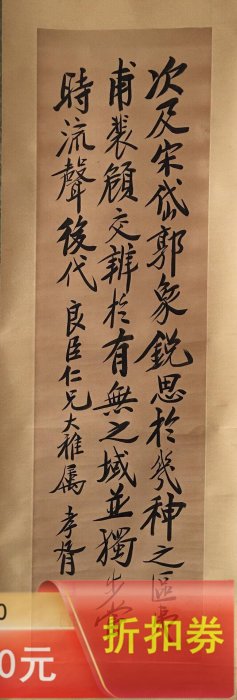 次及宋岱郭象銳思於幾神之區夷
甫裴頠交辨於有無之域並獨步當
時流聲後代 良臣仁兄大雅属 孝胥
0
0元
折扣券